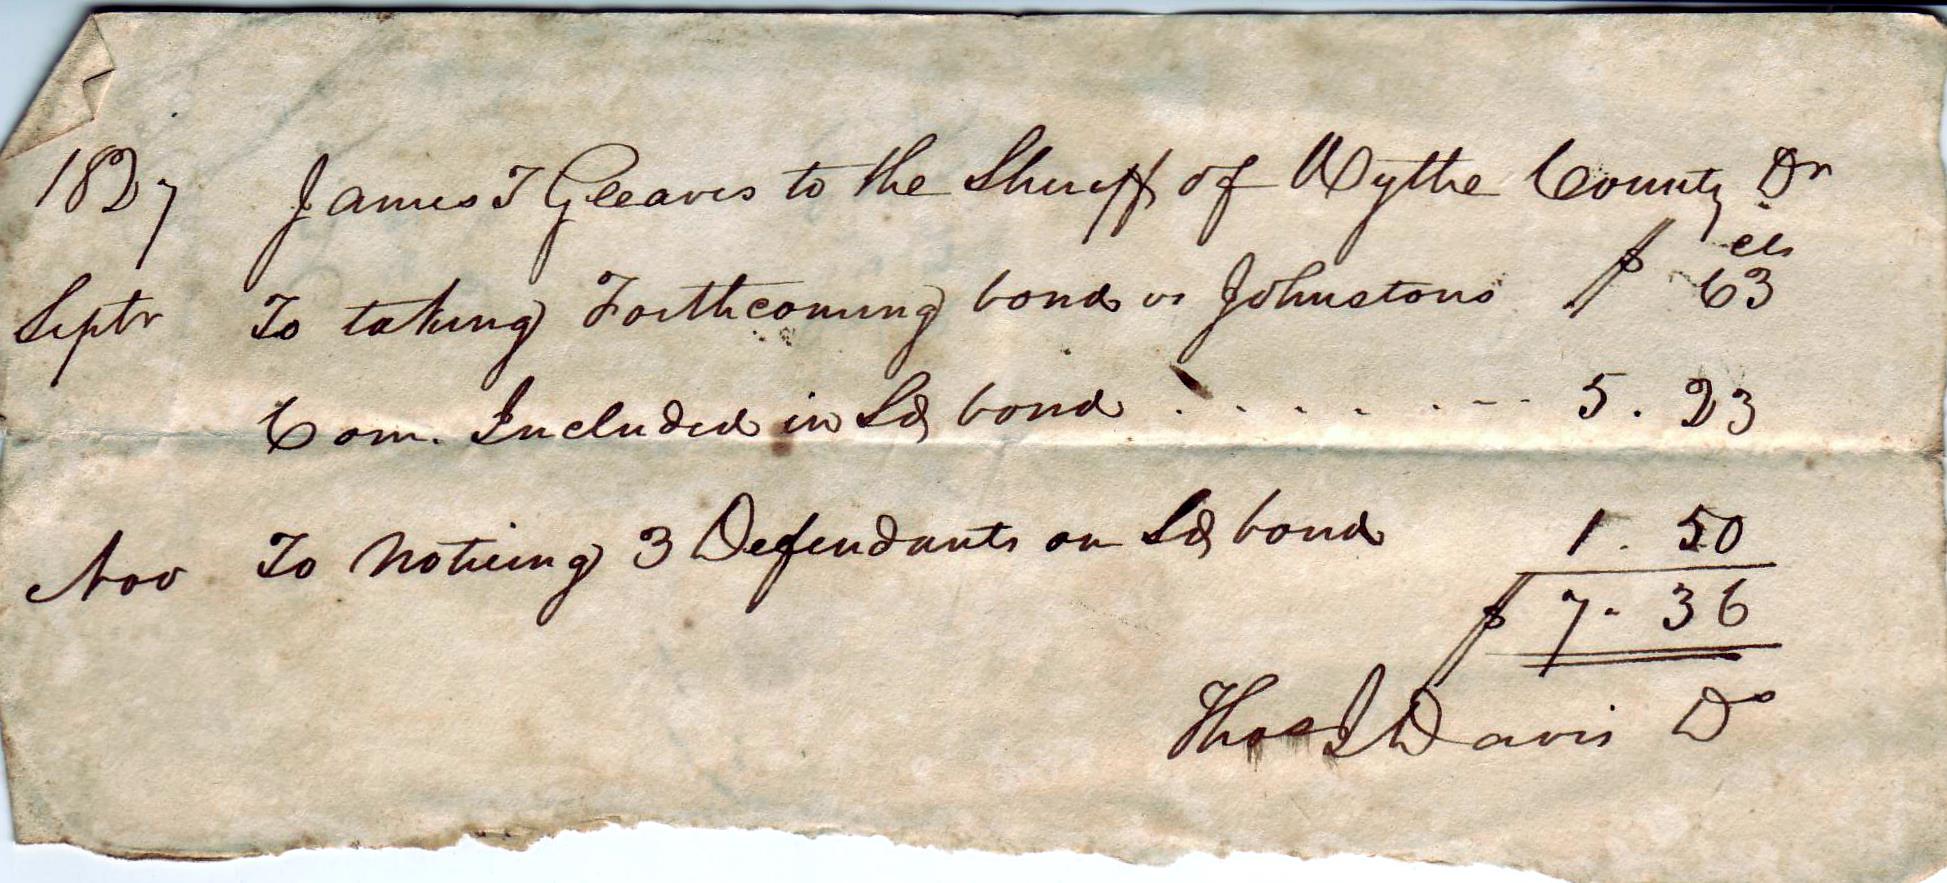 1827 James T Gleaves to the Sheriff of Wythe County Dr
$ cts
Septr To taking Forthcoming bond vs Johnstons 63
Com. Included in Sd bond . . . . . . . - - - 5 . 23
Nov To Noticing 3 Defendants on Sd bond 1 . 50
$ 7 . 36
Thos J Davis D